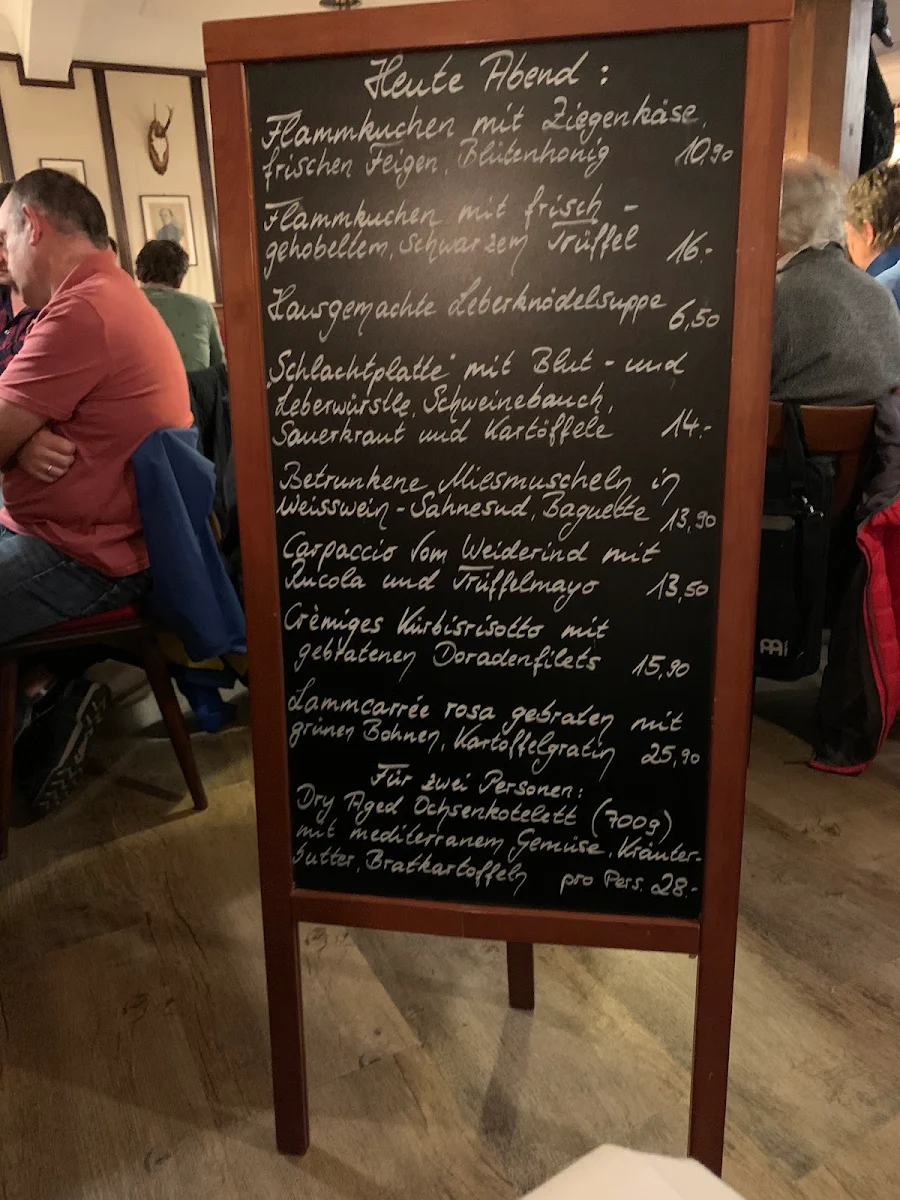 Heute Abend :
Flammkuchen mit Ziegenkäse,
frischen Feigen, Blütenhonig 10,90
Flammkuchen mit frisch-
gehobeltem, Schwarzem Trüffel 16.-
Hausgemachte Leberknödelsuppe 6,50
"Schlachtplatte" mit Blut- und
Leberwürstle, Schweinebauch,
Sauerkraut und Kartöffele 14.-
Betrunkene Miesmuscheln in
Weisswein-Sahnesud, Baguette 13,90
Carpaccio vom Weiderind mit
Rucola und Trüffelmayo 13,50
Crèmiges Kürbisrisotto mit
gebratenen Doradenfilets 15,90
Lammcarrée rosa gebraten mit
grünen Bohnen, Kartoffelgratin 25,90
Für zwei Personen:
Dry Aged Ochsenkotelett (700g)
mit mediterranem Gemüse, Kräuter-
butter, Bratkartoffeln pro Pers. 28.-